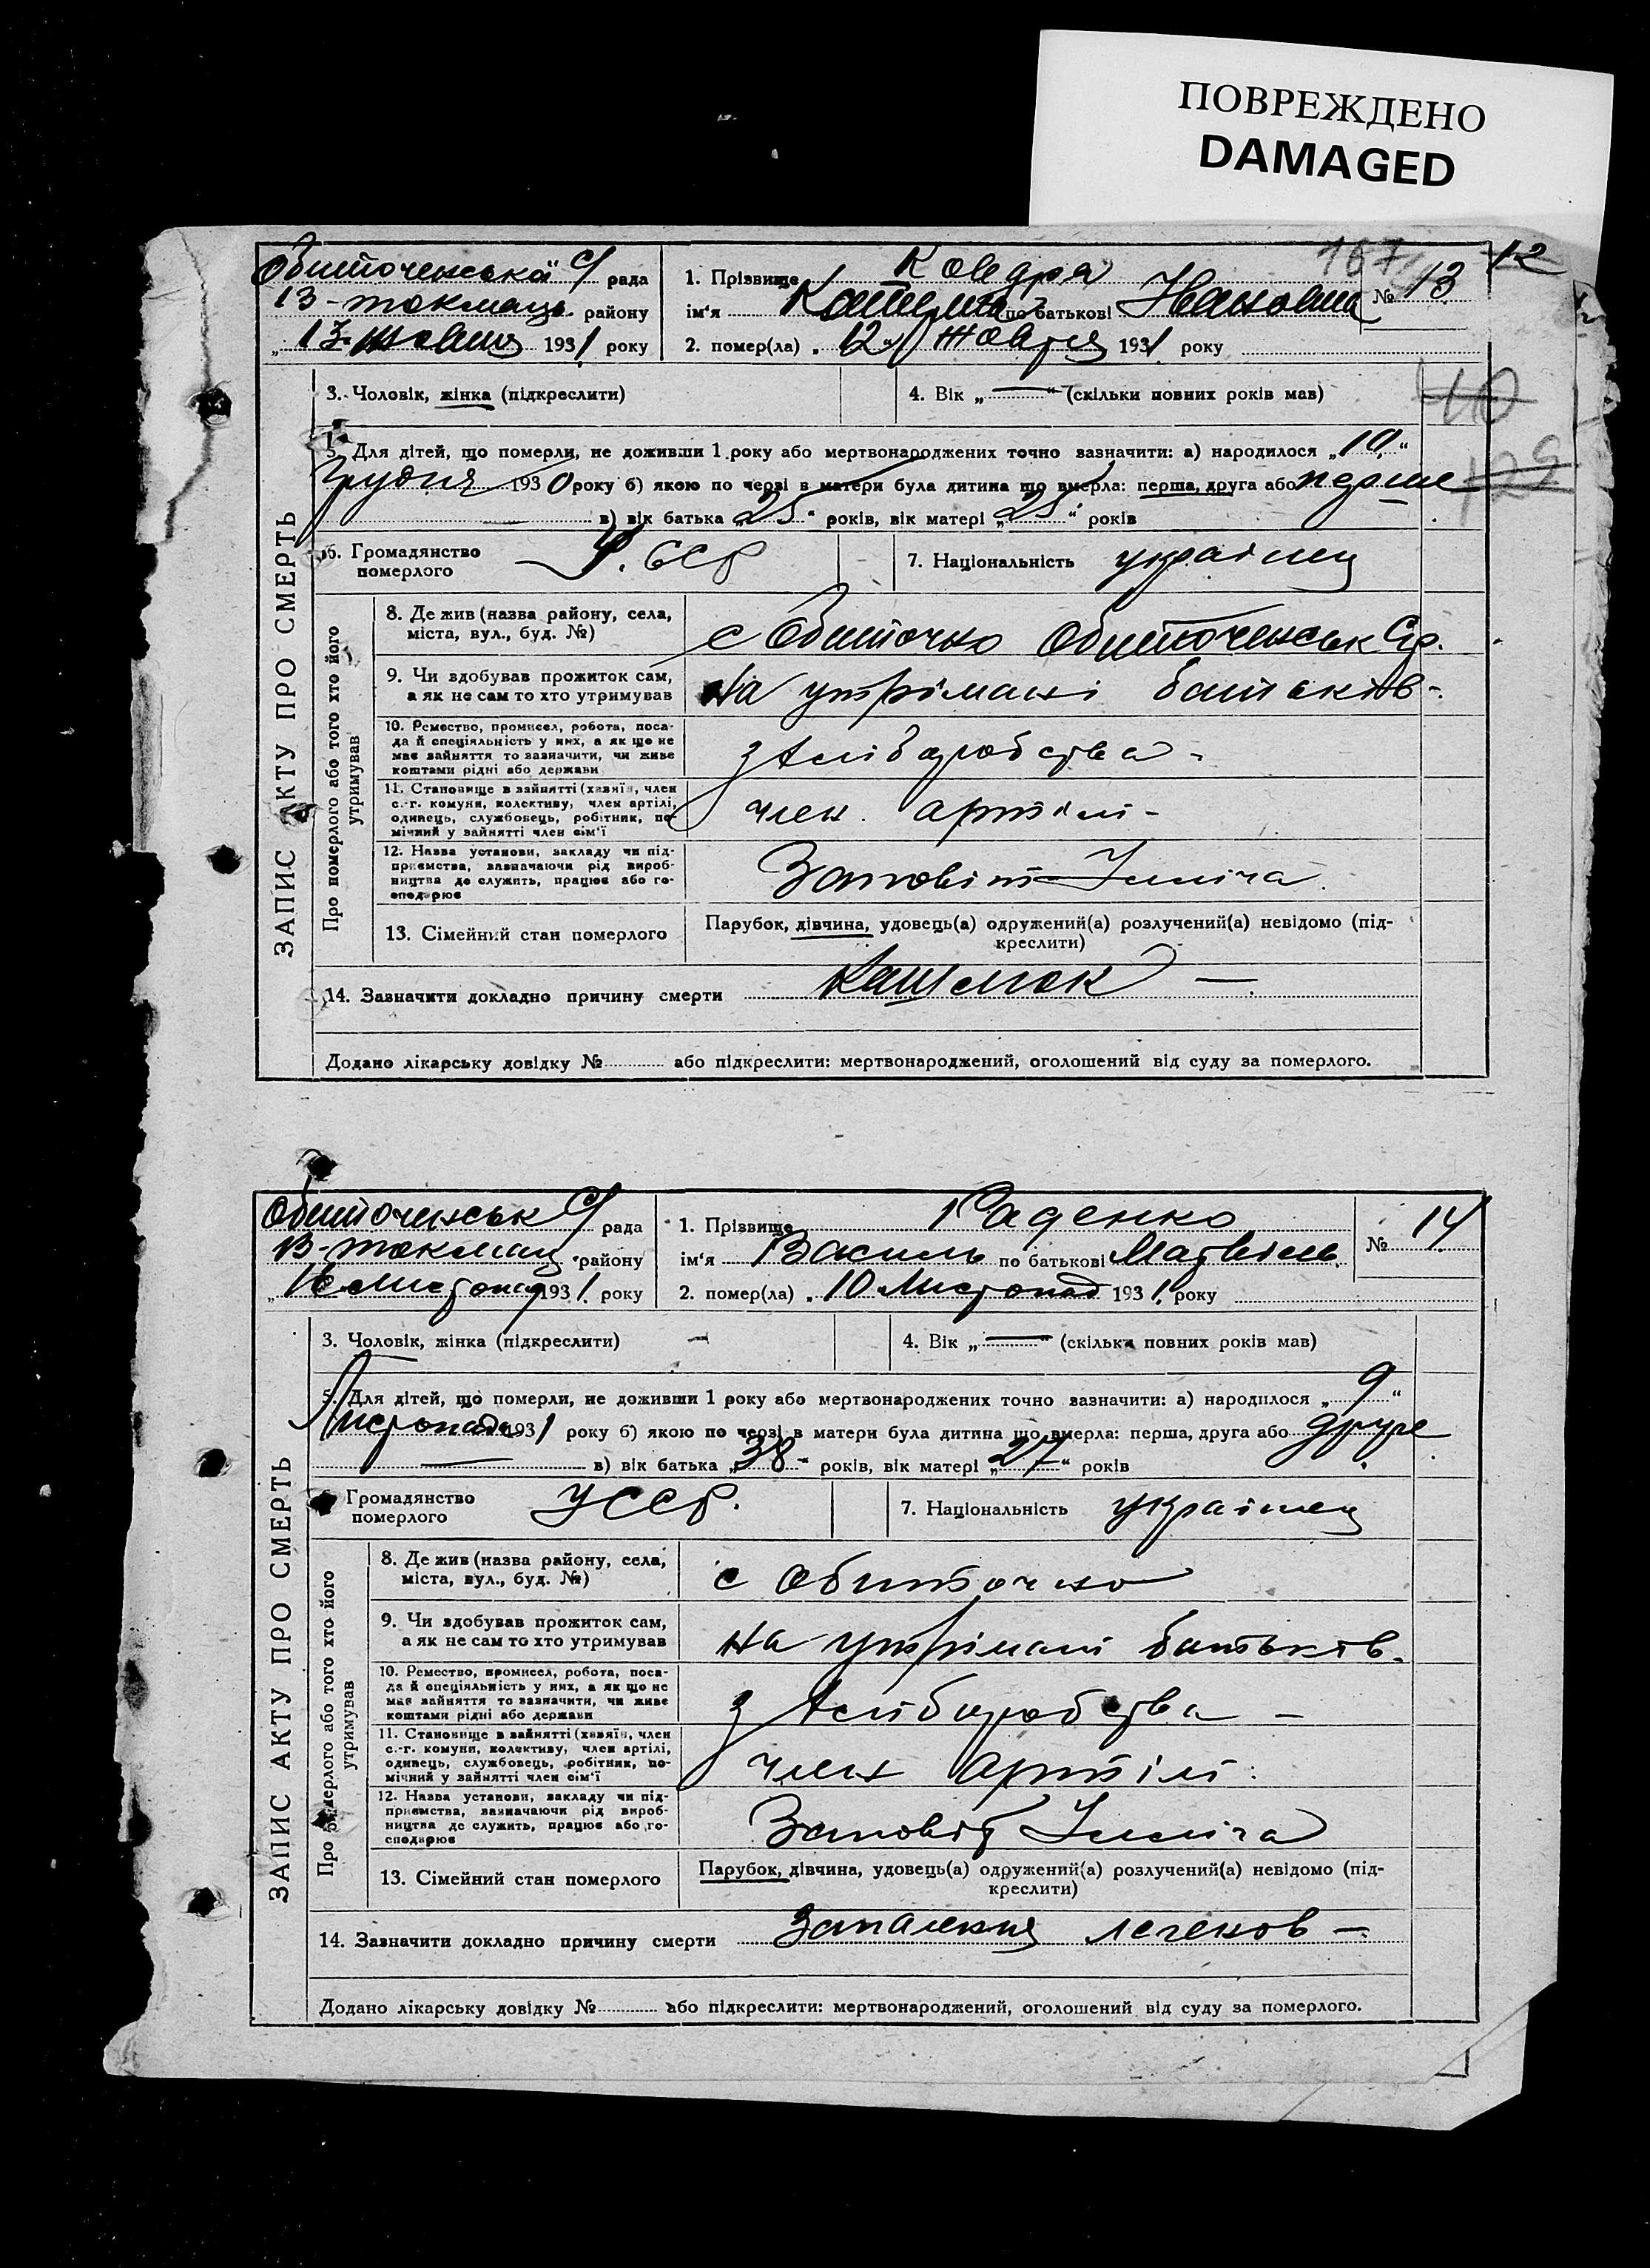 ПОВРЕЖДЕНО
DAMAGED
167 12
Обиточенська с/ рада
В-токмаць. району
„13 жовтня 1931 року
1. Прізвище Ковдря
ім'я Катерина по батькові Івановна № 13
2. помер(ла) „12" Жовтня 1931 року
ЗАПИС АКТУ ПРО СМЕРТЬ
3. Чоловік, жінка (підкреслити)
4. Вік „—" (скільки повних років мав)
40
129
5. Для дітей, що померли, не доживши 1 року або мертвонароджених точно зазначити: а) народилося „10"
Грудня 1930 року б) якою по черзі в матери була дитина що вмерла: перша, друга або перше
— в) вік батька „25" років, вік матері „25" років
6. Громадянство померлого У.ССР
7. Національність українец
Про померлого або того хто його утримував
8. Де жив (назва району, села, міста, вул., буд. №)
с Обиточно Обиточенськ Ср.
9. Чи здобував прожиток сам, а як не сам то хто утримував
на утрімані батьків-
10. Ремество, промисел, робота, посада й спеціяльність у них, а як що не має зайняття то зазначити, чи живе коштами рідні або держави
з хліборобства-
11. Становище в зайнятті (хазяїн, член с.-г. комуни, колективу, член артілі, одинець, службовець, робітник, помічний у зайнятті член сім'ї
член. артілі-
12. Назва установи, закладу чи підприємства, зазначаючи рід виробництва де служить, працює або господарює
Заповіт Ілліча.
13. Сімейний стан померлого
Парубок, дівчина, удовець(а) одружений(а) розлучений(а) невідомо (підкреслити)
14. Зазначити докладно причину смерти Кашлюк —
Додано лікарську довідку № або підкреслити: мертвонароджений, оголошений від суду за померлого.
Обиточенськ с/ рада
В-токмац району
„16 листопад 1931. року
1. Прізвище Раденко
ім'я Василь по батькові Матвієв. № 14
2. помер(ла) „10 Листопад 1931. року
ЗАПИС АКТУ ПРО СМЕРТЬ
3. Чоловік, жінка (підкреслити) —
4. Вік „—" (скільки повних років мав)
5. Для дітей, що померли, не доживши 1 року або мертвонароджених точно зазначити: а) народилося „9"
Листопада 1931 року б) якою по черзі в матери була дитина що вмерла: перша, друга або друге
— в) вік батька „38" років, вік матері „27" років
Громадянство померлого УССР.
7. Національність українец
Про померлого або того хто його утримував
8. Де жив (назва району, села, міста, вул., буд. №)
с Обиточно
9. Чи здобував прожиток сам, а як не сам то хто утримував
на утрімані батьків.
10. Ремество, промисел, робота, посада й спеціяльність у них, а як що не має зайняття то зазначити, чи живе коштами рідні або держави
з хліборобства —
11. Становище в зайнятті (хазяїн, член с.-г. комуни, колективу, член артілі, одинець, службовець, робітник, помічний у зайнятті член сім'ї
член артілі.
12. Назва установи, закладу чи підприємства, зазначаючи рід виробництва де служить, працює або господарює
Заповіт Ілліча
13. Сімейний стан померлого
Парубок, дівчина, удовець(а) одружений(а) розлучений(а) невідомо (підкреслити)
14. Зазначити докладно причину смерти Запалення легенов —
Додано лікарську довідку № або підкреслити: мертвонароджений, оголошений від суду за померлого.